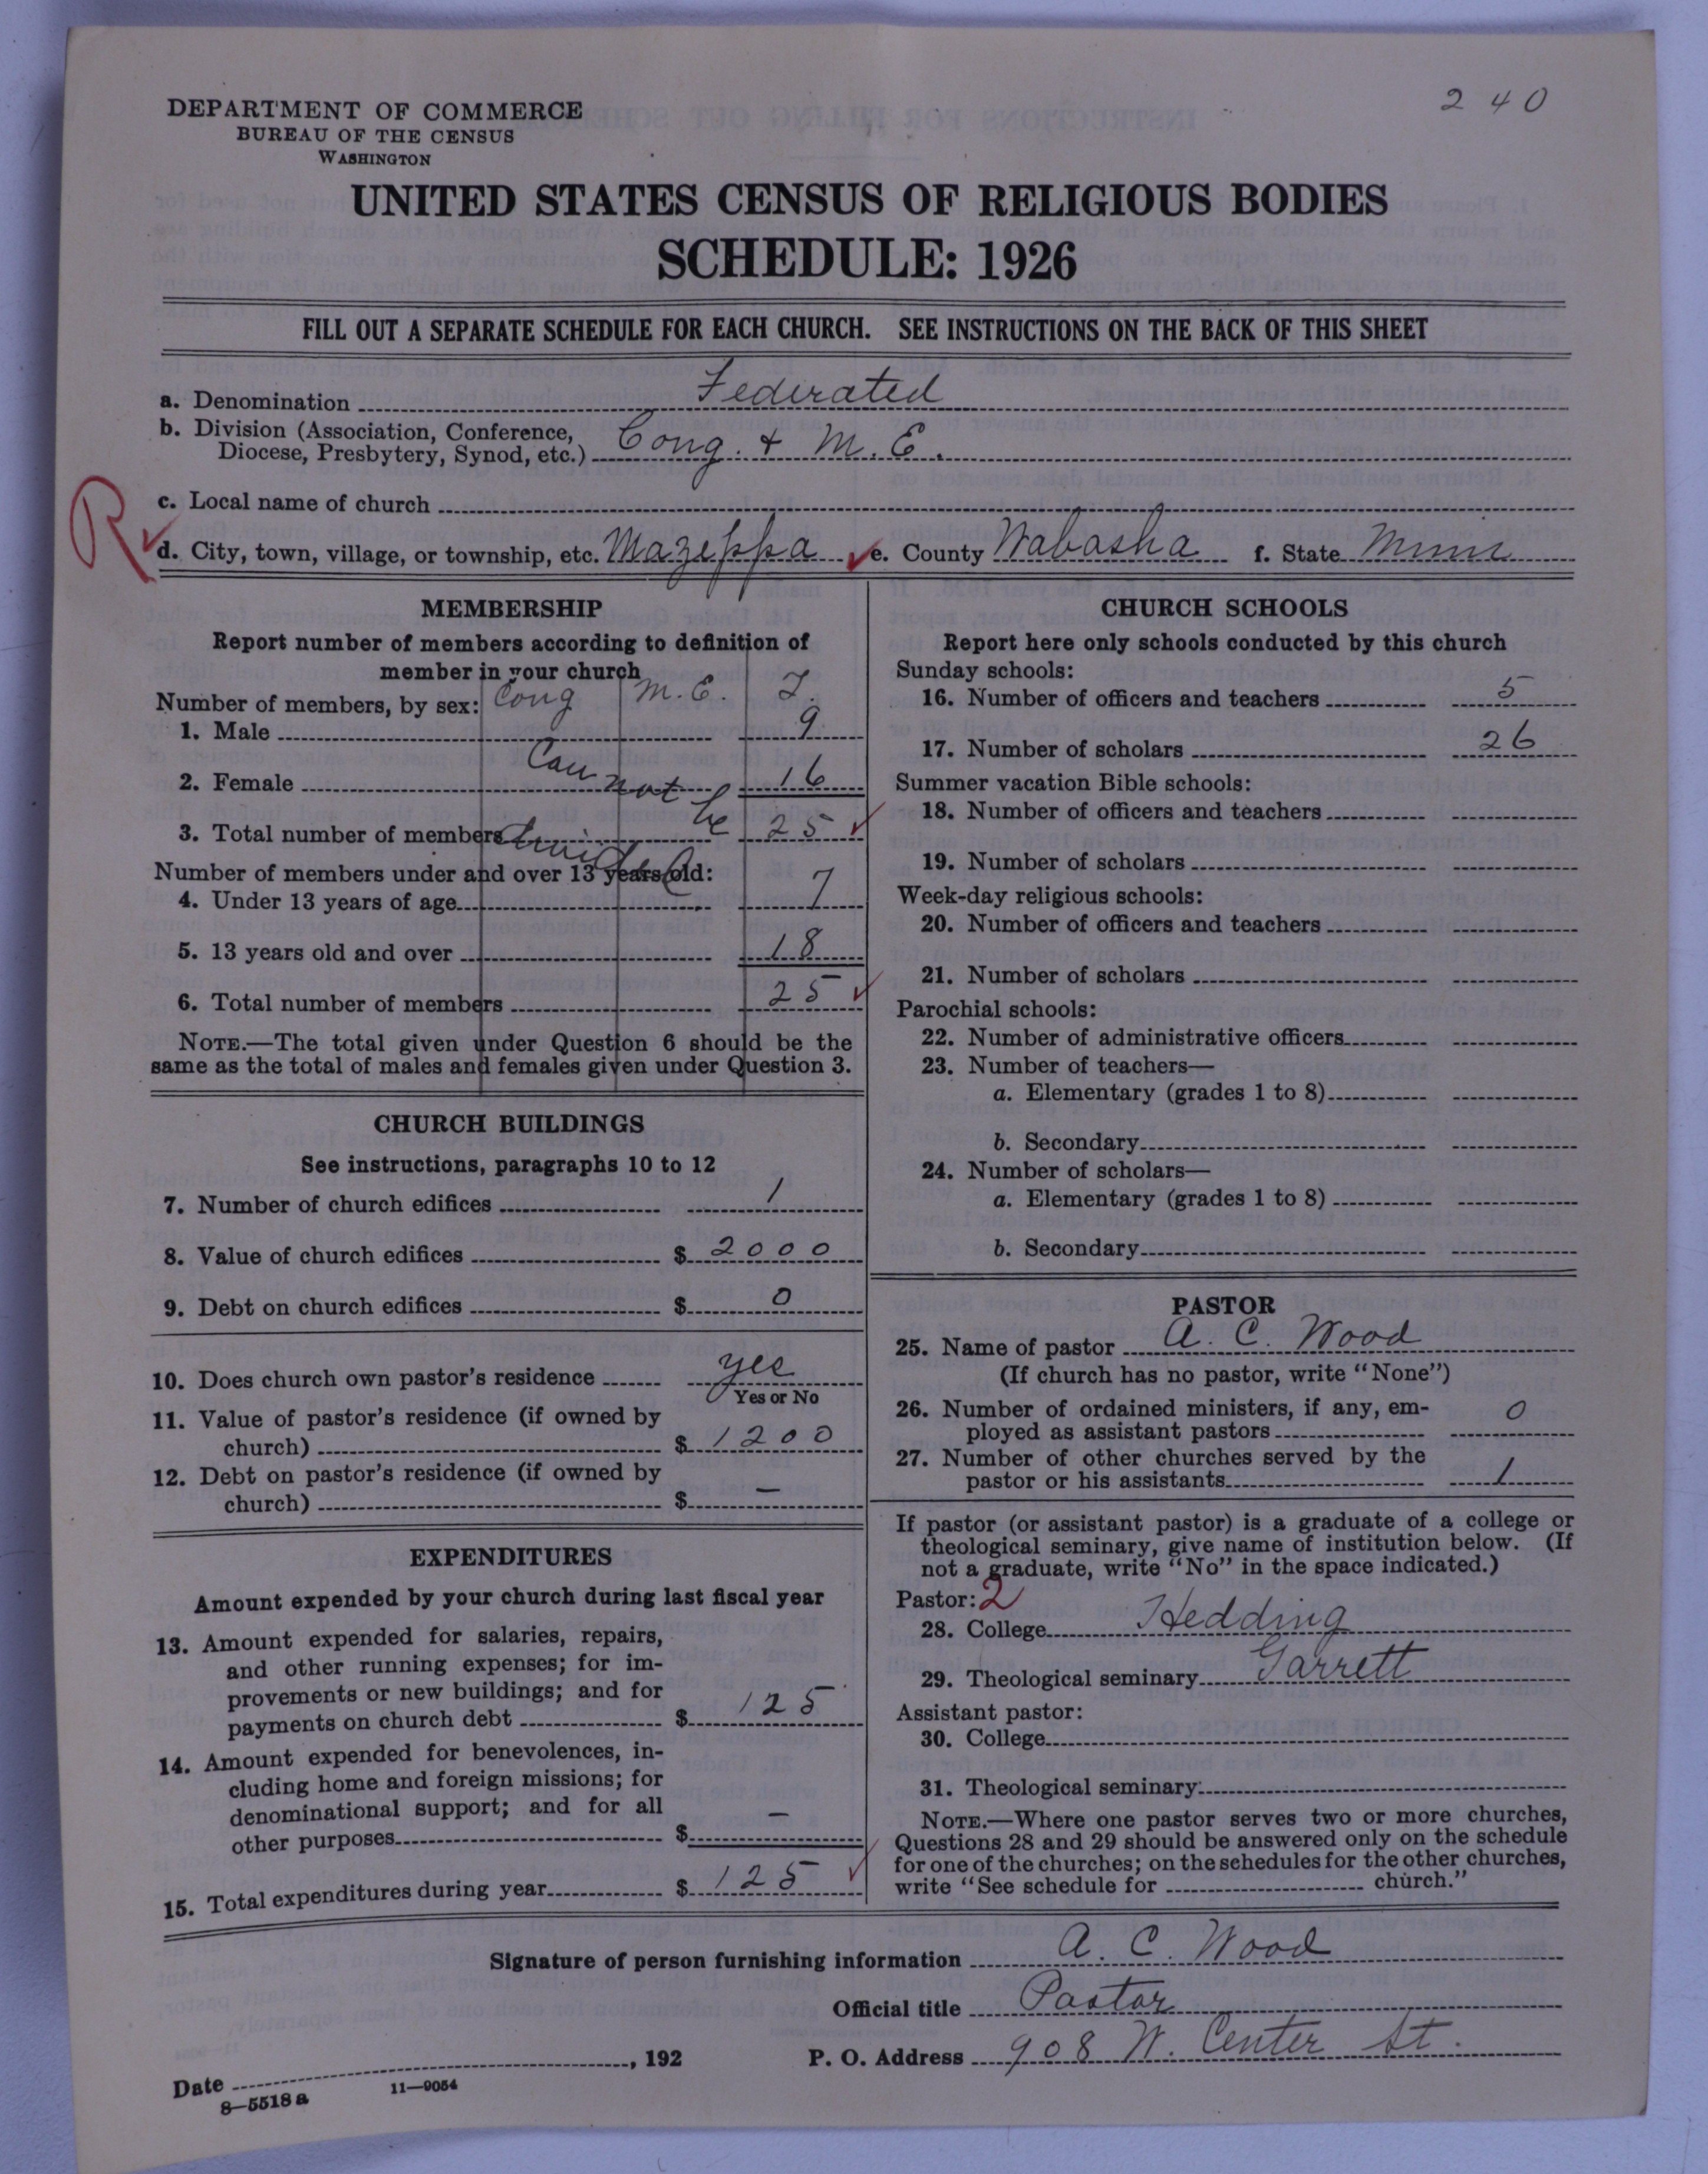 240
DEPARTMENT OF COMMERCE
BUREAU OF THE CENSUS
WASHINGTON
UNITED STATES CENSUS OF RELIGIOUS BODIES
SCHEDULE: 1926
FILL OUT A SEPARATE SCHEDULE FOR EACH CHURCH. SEE INSTRUCTIONS ON THE BACK OF THIS SHEET
a. Denomination Federated
b. Division (Association, Conference,
Diocese, Presbytery, Synod, etc.) Cong. + M. E.
R
c. Local name of church
d. City, town, village, or township, etc. Mazeppa e. County Wabasha f. State Minn
MEMBERSHIP
Report number of members according to definition of
member in your church
Number of members, by sex: Cong M. E.
1. Male 9
2. Female 16
Can not be
3. Total number of members 25
divided
Number of members under and over 13 years old:
4. Under 13 years of age 7
5. 13 years old and over 18
6. Total number of members 25
NOTE.—The total given under Question 6 should be the
same as the total of males and females given under Question 3.
CHURCH BUILDINGS
See instructions, paragraphs 10 to 12
7. Number of church edifices 1
8. Value of church edifices $ 2000
9. Debt on church edifices $ 0
10. Does church own pastor's residence yes
Yes or No
11. Value of pastor's residence (if owned by
church) $ 1200
12. Debt on pastor's residence (if owned by
church) $ —
EXPENDITURES
Amount expended by your church during last fiscal year
13. Amount expended for salaries, repairs,
and other running expenses; for im-
provements or new buildings; and for
payments on church debt $ 125
14. Amount expended for benevolences, in-
cluding home and foreign missions; for
denominational support; and for all
other purposes $ —
15. Total expenditures during year $ 125
CHURCH SCHOOLS
Report here only schools conducted by this church
Sunday schools:
16. Number of officers and teachers 5
17. Number of scholars 26
Summer vacation Bible schools:
18. Number of officers and teachers
19. Number of scholars
Week-day religious schools:
20. Number of officers and teachers
21. Number of scholars
Parochial schools:
22. Number of administrative officers
23. Number of teachers—
a. Elementary (grades 1 to 8)
b. Secondary
24. Number of scholars—
a. Elementary (grades 1 to 8)
b. Secondary
PASTOR
25. Name of pastor A. C. Wood
(If church has no pastor, write "None")
26. Number of ordained ministers, if any, em-
ployed as assistant pastors 0
27. Number of other churches served by the
pastor or his assistants 1
If pastor (or assistant pastor) is a graduate of a college or
theological seminary, give name of institution below. (If
not a graduate, write "No" in the space indicated.)
Pastor: 2
28. College Hedding
29. Theological seminary Garrett
Assistant pastor:
30. College
31. Theological seminary
NOTE.—Where one pastor serves two or more churches,
Questions 28 and 29 should be answered only on the schedule
for one of the churches; on the schedules for the other churches,
write "See schedule for church."
Signature of person furnishing information A. C. Wood
Official title Pastor
Date , 192 P. O. Address 908 W. Center St.
8—5518 a 11—9054